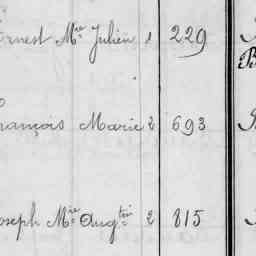 Ernest Mie Julien 1 229
François Marie 2 693
Joseph Mie Augtin 2 815